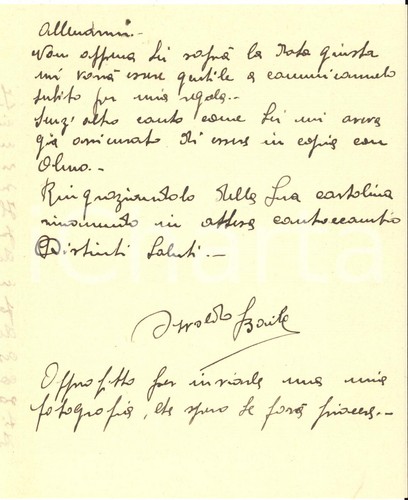 allenarmi.-
Non appena Lei saprà la data giusta
mi vorrà essere gentile a comunicarmelo
subito per mia regola.-
Senz'altro conto come Lei mi aveva
già assicurato di essere in coppia con
Olmo.-
Ringraziandolo della Sua cartolina
rimanendo in attesa contraccambio
Distinti Saluti.-
Osvaldo
Approfitto per inviarle una mia
fotografia, che spero le farà piacere.-